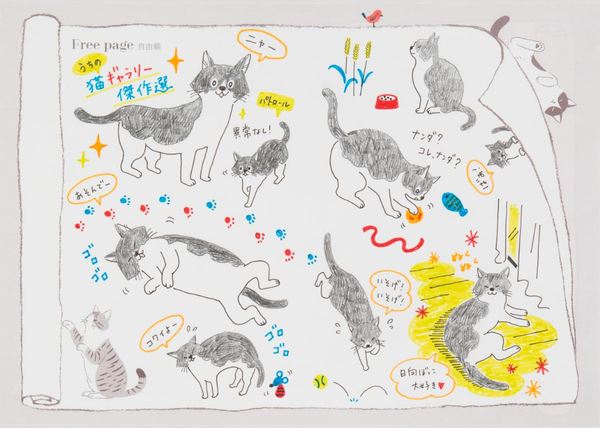 Free page 自由帳
うちの
猫ギャラリー
傑作選
ニャー
パトロール
異常なし!
ナンダ?
コレ、ナンダ?
あそんでー
ゴロゴロ
ゴロゴロ
コワイよー
いそげ!
いそげ!
日向ぼっこ
大好き♥